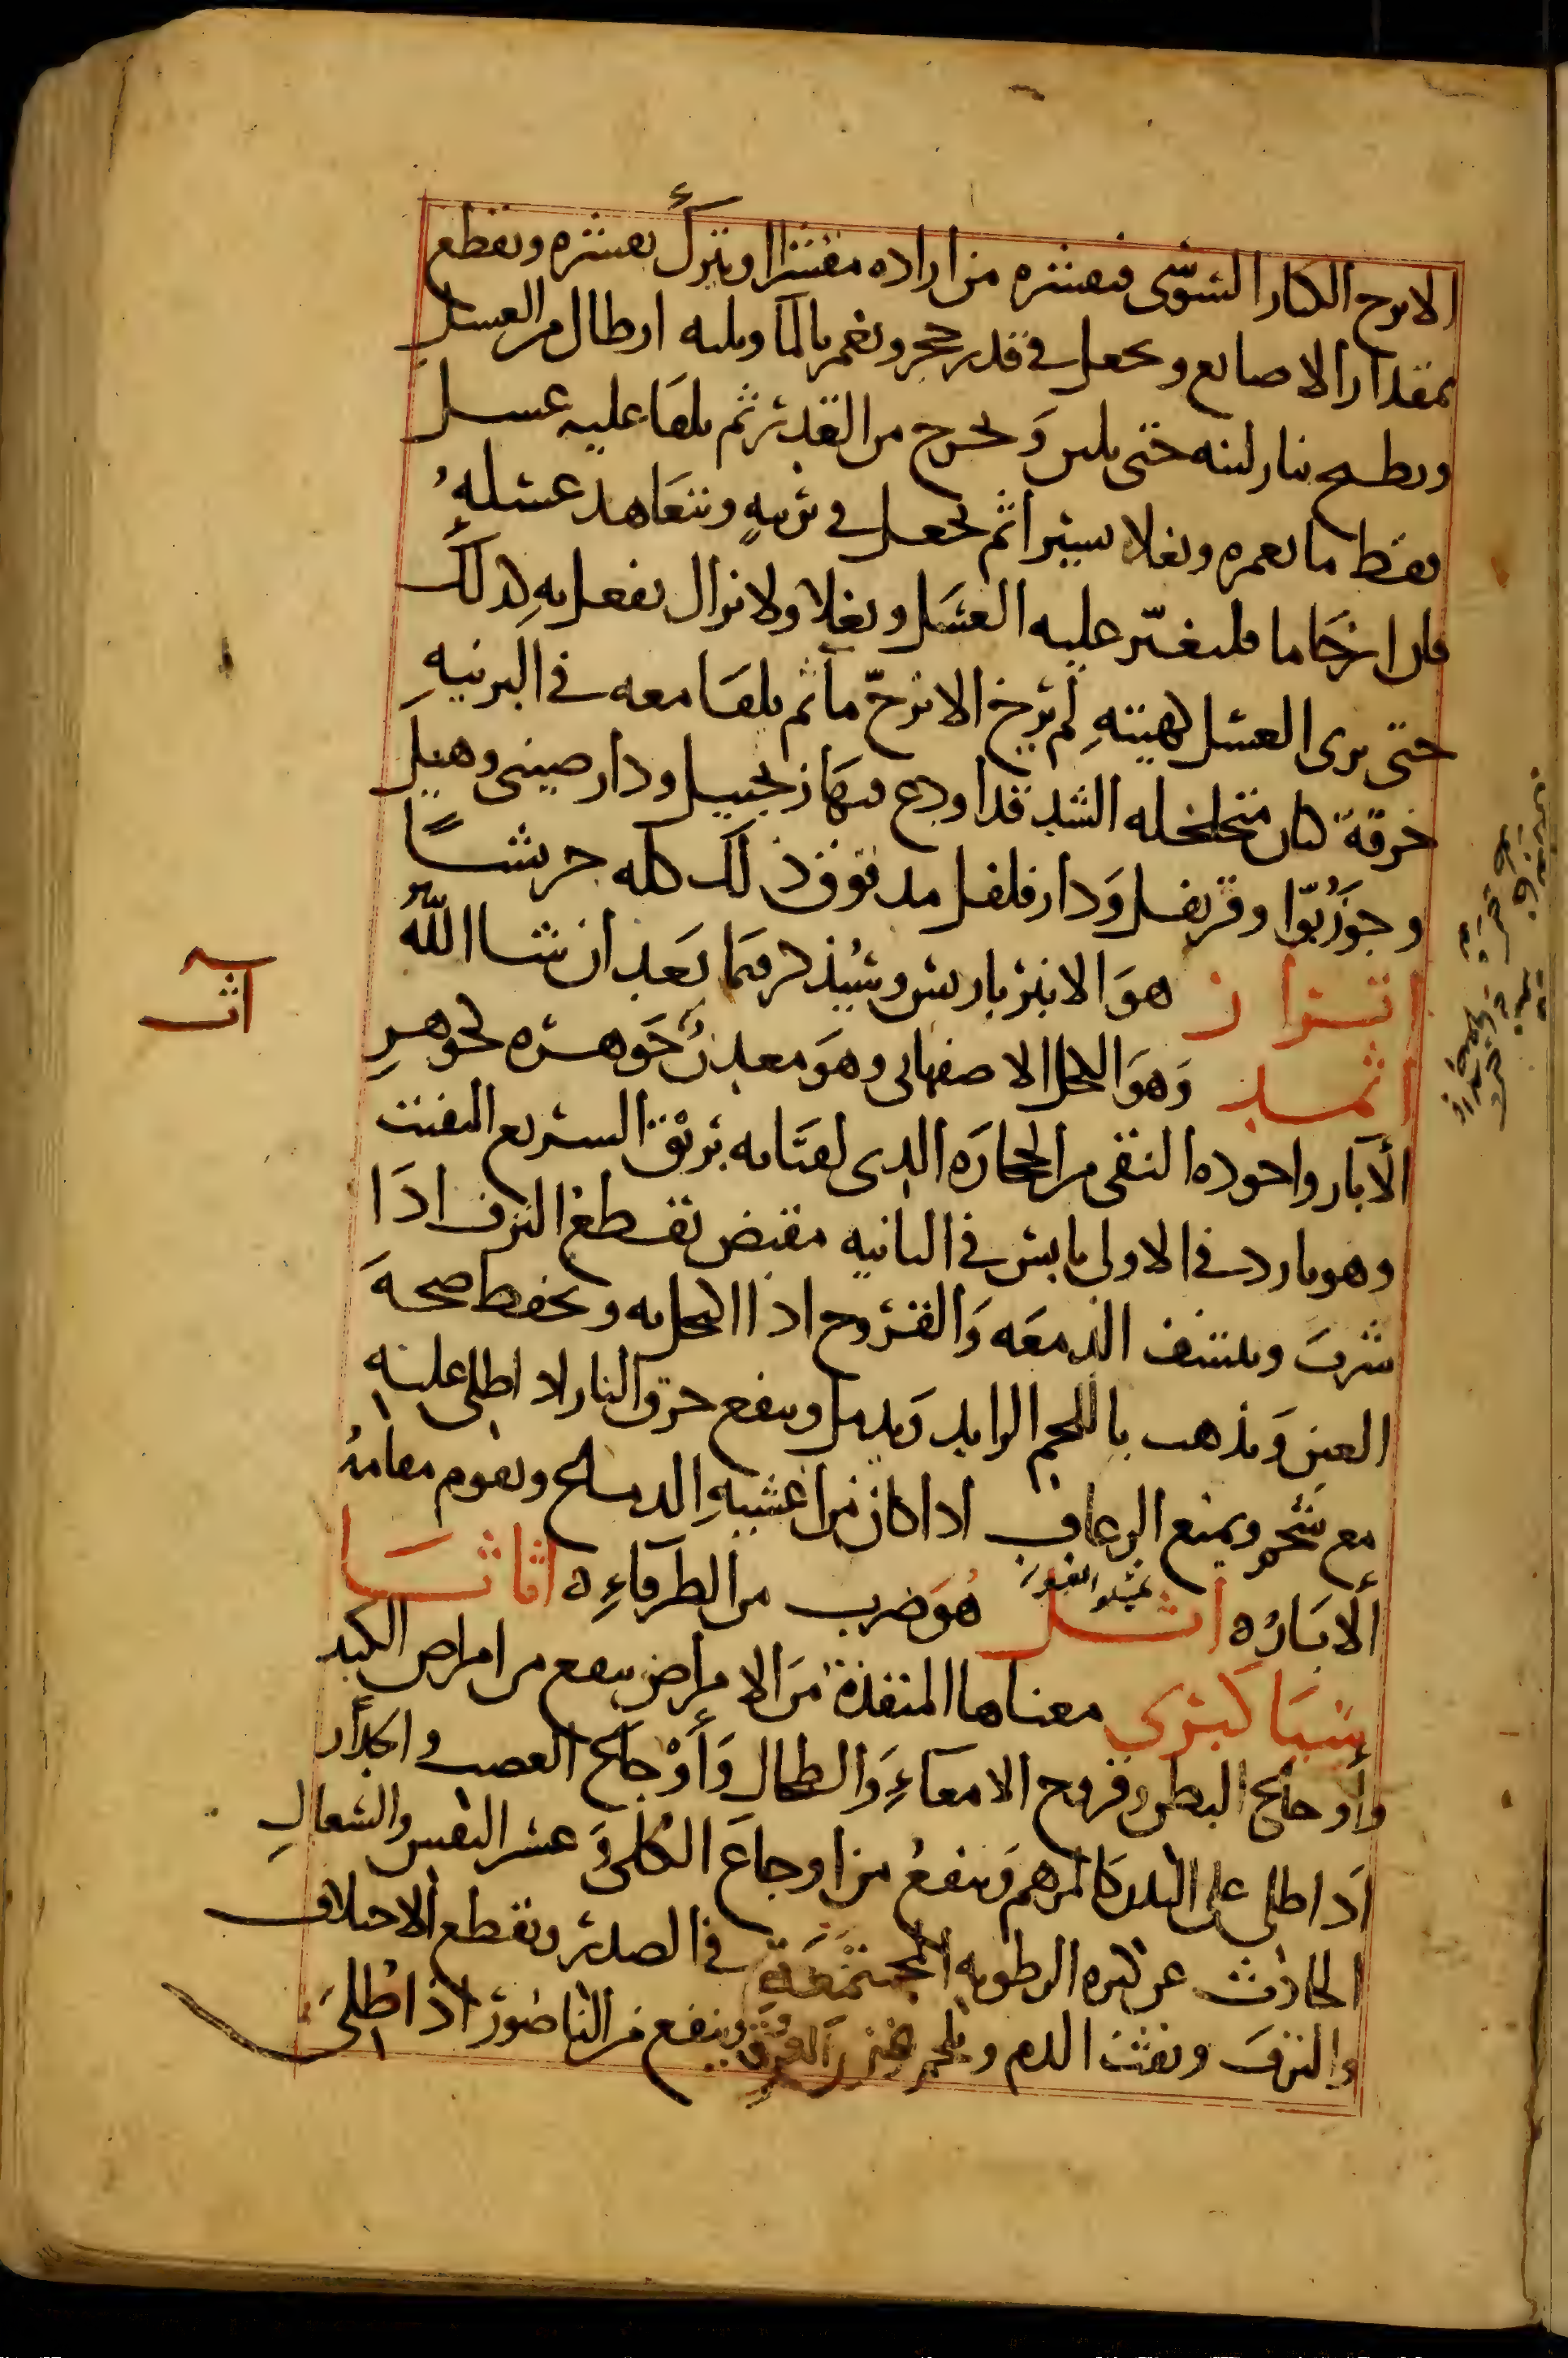 الاترج الكبار السوسى فيقشره من اراده مقشرا ويترك بقشره ويقطع
بمقدار الاصابع ويجعل فى قدر حجر ويغمر بالما وثلثه ارطال من العسل
ويطبخ بنار لينه حتى يلين ويخرج من القدر ثم يلقا عليه عسل
بقط ما يغمره ويغلا يسيرا ثم يجعل فى برنيه ويتعاهد عسله
فان ارخا ما فليغير عليه العسل ويغلا ولا يزال يفعل به كذلك
حتى يرى العسل كهيئته لم يرخ الاترج ما ثم يلقا معه فى البرنيه
خرقة كتان متخلخله الشد قد اودع فيها زنجبيل ودار صينى وهيل
وجوزبوا وقرنفل ودار فلفل مدقوق ذلك كله جريشا
اترار هو الانبرباريس وسيذكر فيما بعد ان شا الله
اثمد وهو الكحل الاصفهانى وهو معدن جوهره كجوهر
الآبار واجوده النقى من الحجاره الذى لفتاته بريق السريع التفتت
وهو بارد فى الاولى يابس فى الثانيه مقبض يقطع النزف اذا
شرب وينشف الدمعه والقروح اذا اكتحل به ويحفظ صحه
العين ويذهب باللحم الزايد ويدمل وينفع حرق النار اذا طلى عليه
مع شحم ويمنع الرعاف اذا كان من اغشيه الدماغ ويقوم مقامه
الآبار ه اثل هو ضرب من الطرفاء ه اثاناسيا
كبرى معناها المنقذة من الامراض ينفع من امراض الكبد
وأوجاع البطن وقروح الامعاء والطحال وأوجاع العصب
اذا طلى على البدن كالمرهم وينفع من اوجاع الكلى وعسر النفس والسعال
الحادث عن كثره الرطوبه المجتمعة فى الصدر ويقطع الاختلاف
والنزف ونفث الدم وينفع من الناصور اذا طلى
اث